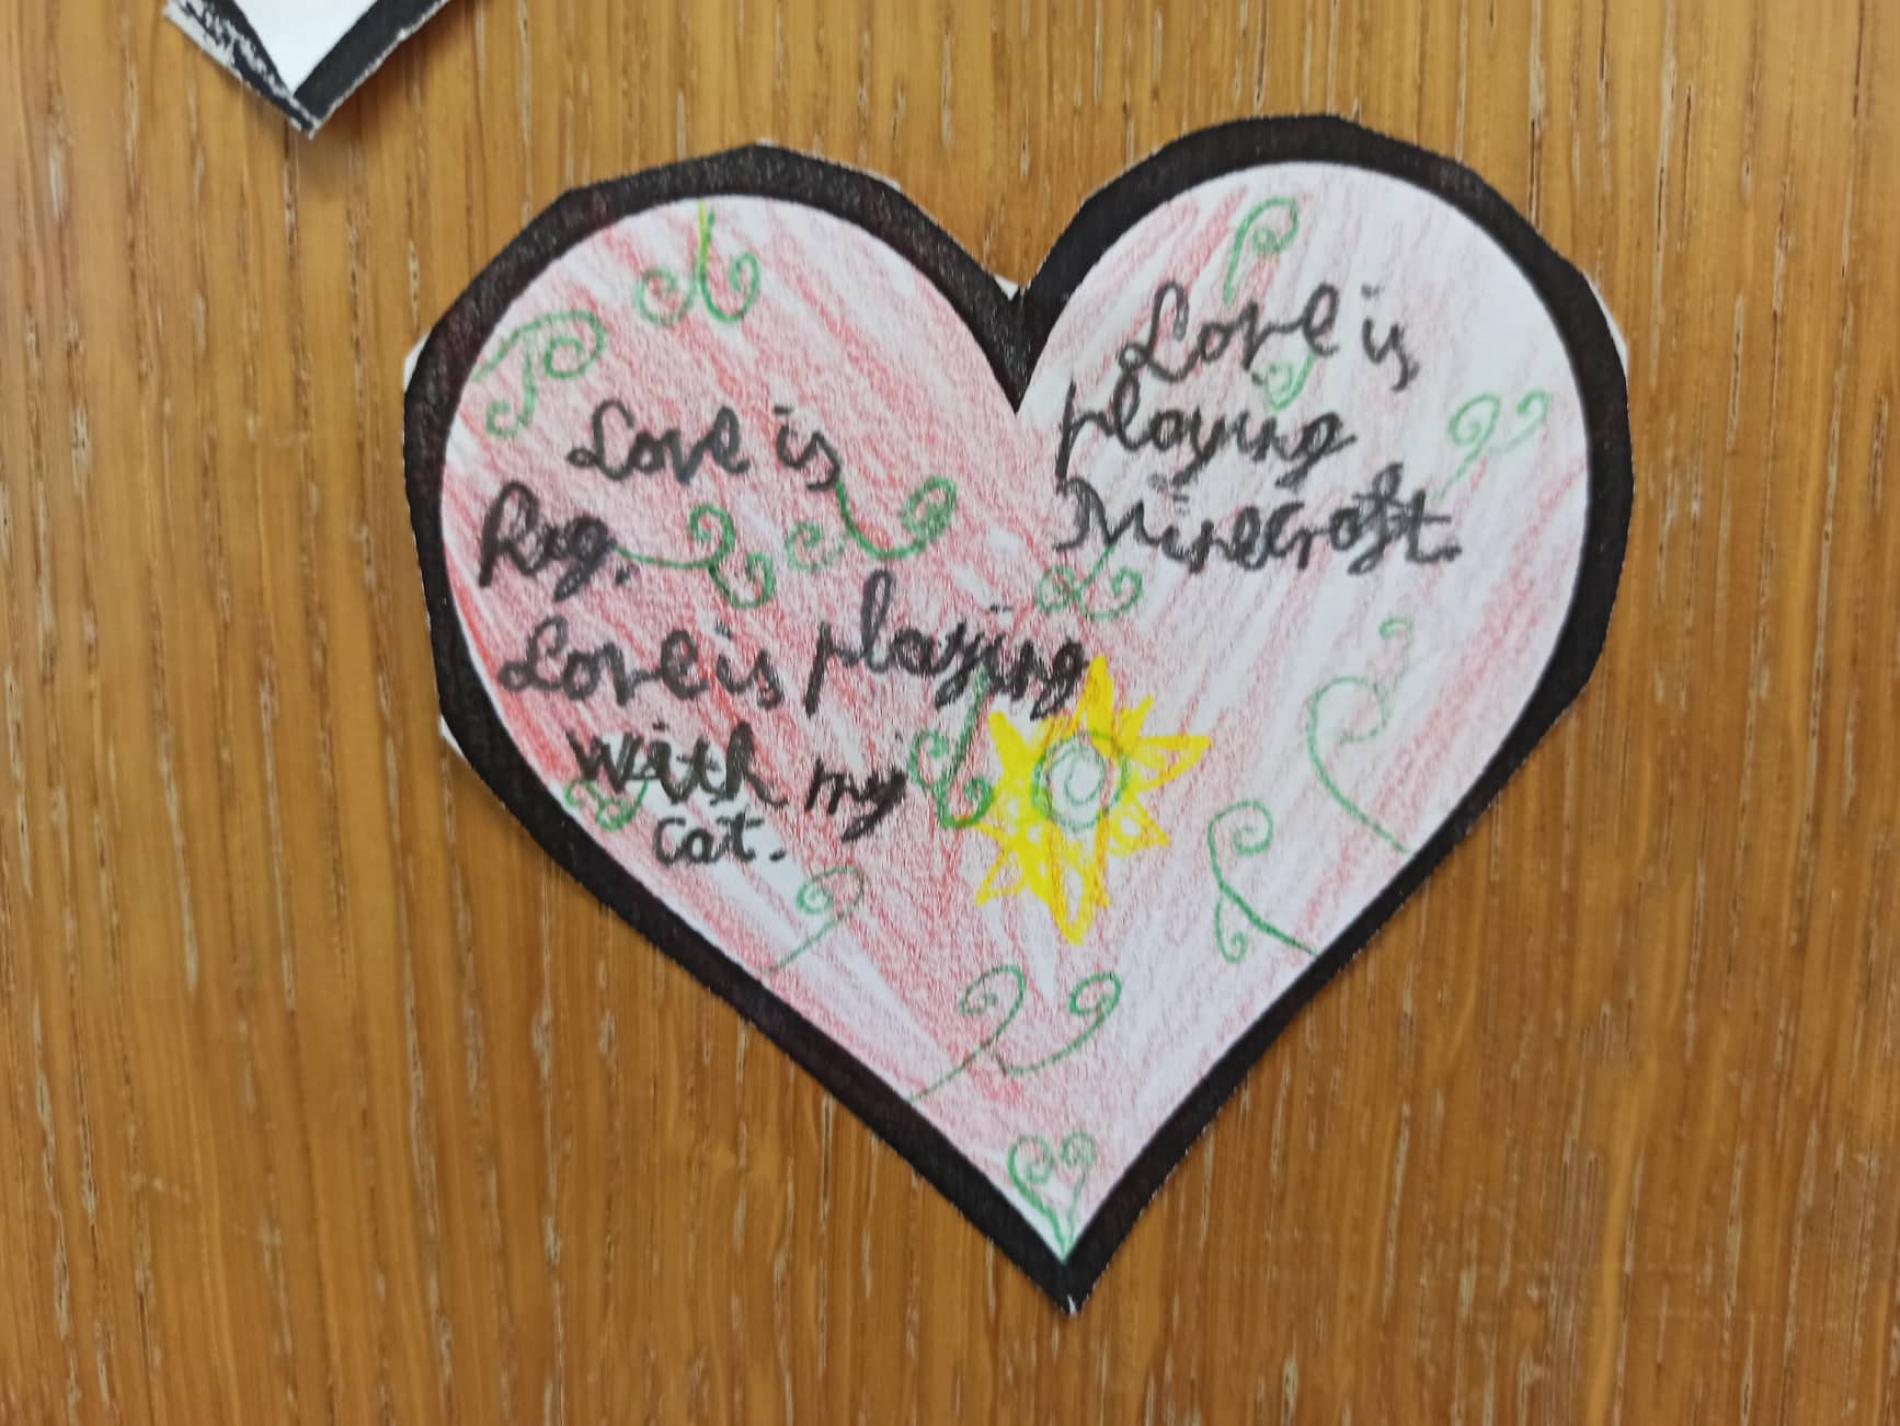 Love is
Love is playing
with my
cat.
Love is
playing
Minecraft.